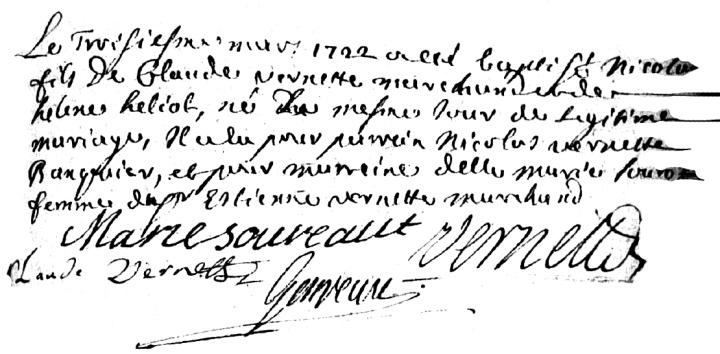 Le Troisiesme mars 1722 a esté baptisé Nicolas
fils de Claude vernette marchand et de
helene heliot, né le mesme Jour de legitime
mariage, Il a eu pour parrein Nicolas vernette
Banquier, et pour marreine delle marie
femme du sr Estienne vernette marchand
Marie soureaut Vernette
Claude Vernette